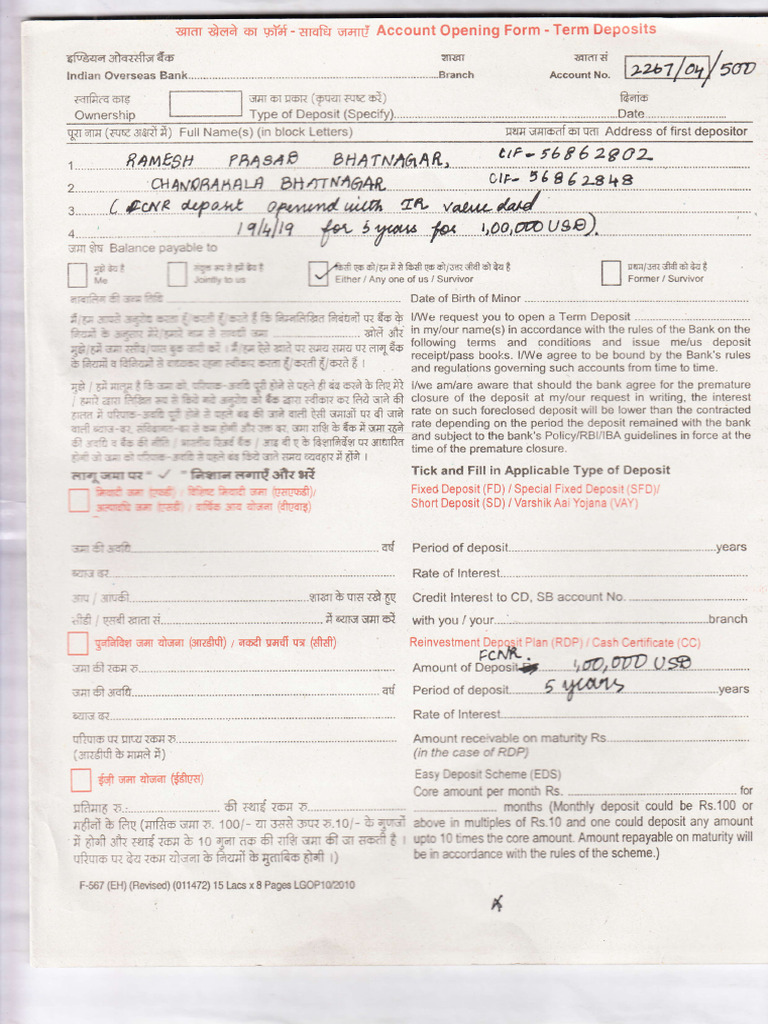 खाता खेलने का फ़ॉर्म - सावधि जमाएँ Account Opening Form - Term Deposits
इण्डियन ओवरसीज बैंक शाखा खाता सं
Indian Overseas Bank Branch Account No. 2267/04/500
स्वामित्व काड़ जमा का प्रकार (कृपया स्पष्ट करें) दिनांक
Ownership Type of Deposit (Specify) Date
पूरा नाम (स्पष्ट अक्षरों में) Full Name(s) (in block Letters) प्रथम जमाकर्ता का पता Address of first depositor
1 RAMESH PRASAB BHATNAGAR, CIF-56862802
2 CHANDRAKALA BHATNAGAR CIF-56862848
3 (FCNR deposit openend with IR value dard
4 19/4/19 for 5 years for 1,00,000 USD).
जमा शेष Balance payable to
मुझे देय है संयुक्त रूप से हमें देय है किसी एक को/हम में से किसी एक को/उत्तर जीवी को देय है प्रथम/उत्तर जीवी को देय है
Me Jointly to us ✓ Either / Any one of us / Survivor Former / Survivor
नाबालिग की जन्म तिथि Date of Birth of Minor
मैं/हम आपसे अनुरोध करता हूँ/करती हूँ/करते हैं कि निम्नलिखित निबंधनों पर बैंक के I/We request you to open a Term Deposit
नियमों के अनुसार मेरे/हमारे नाम से सावधी जमा खोलें और in my/our name(s) in accordance with the rules of the Bank on the
मुझे/हमें जमा रसीद/पास बुक जारी करें । मैं/हम ऐसे खाते पर समय समय पर लागू बैंक following terms and conditions and issue me/us deposit
के नियमों व विनियमों से बाध्यकर रहना स्वीकार करता हूँ/करती हूँ/करते हैं । receipt/pass books. I/We agree to be bound by the Bank's rules
and regulations governing such accounts from time to time.
मुझे / हमें मालूम है कि जमा को, परिपाक-अवधि पूरी होने से पहले ही बंद करने के लिए मेरे I/we am/are aware that should the bank agree for the premature
/ हमारे द्वारा लिखित रूप से किये गये अनुरोध को बैंक द्वारा स्वीकार कर लिये जाने की closure of the deposit at my/our request in writing, the interest
हालत में परिपाक-अवधि पूरी होने से पहले बंद की जाने वाली ऐसी जमाओं पर दी जाने rate on such foreclosed deposit will be lower than the contracted
वाली ब्याज-दर, संविदागत-दर से कम होगी और उक्त दर, जमा राशि के बैंक में जमा रहने rate depending on the period the deposit remained with the bank
की अवधि व बैंक की नीति / भारतीय रिज़र्व बैंक / आइ बी ए के दिशानिर्देश पर आधारित and subject to the bank's Policy/RBI/IBA guidelines in force at the
होगी जो जमा को परिपाक-अवधि से पहले बंद किये जाते समय व्यवहार में होंगे । time of the premature closure.
लागू जमा पर " ✓ " निशान लगाएँ और भरें Tick and Fill in Applicable Type of Deposit
मियादी जमा (एफडी) / विशिष्ट मियादी जमा (एसएफडी)/ Fixed Deposit (FD) / Special Fixed Deposit (SFD)/
अल्पावधि जमा (एसडी) / वार्षिक आय योजना (वीएवाइ) Short Deposit (SD) / Varshik Aai Yojana (VAY)
जमा की अवधि वर्ष Period of deposit years
ब्याज दर Rate of Interest
आप / आपकी शाखा के पास रखे हुए Credit Interest to CD, SB account No.
सीडी / एसबी खाता सं में ब्याज जमा करें with you / your branch
पुननिविश जमा योजना (आरडीपी) / नकदी प्रमर्ची पत्र (सीसी) Reinvestment Deposit Plan (RDP) / Cash Certificate (CC)
FCNR.
जमा की रकम रु Amount of Deposit 1,00,000 USD
जमा की अवधि वर्ष Period of deposit 5 years years
ब्याज दर Rate of Interest
परिपाक पर प्राप्य रकम रु Amount receivable on maturity Rs
(आरडीपी के मामले में) (in the case of RDP)
ईज़ी जमा योजना (ईडीएस) Easy Deposit Scheme (EDS)
Core amount per month Rs. for
प्रतिमाह रु.: की स्थाई रकम रु months (Monthly deposit could be Rs.100 or
महीनों के लिए (मासिक जमा रु. 100/- या उससे ऊपर रु.10/- के गुणजों above in multiples of Rs.10 and one could deposit any amount
में होगी और स्थाई रकम के 10 गुना तक की राशि जमा की जा सकती है । upto 10 times the core amount. Amount repayable on maturity will
परिपाक पर देय रकम योजना के नियमों के मुताबिक होगी ।) be in accordance with the rules of the scheme.)
F-567 (EH) (Revised) (011472) 15 Lacs x 8 Pages LGOP10/2010